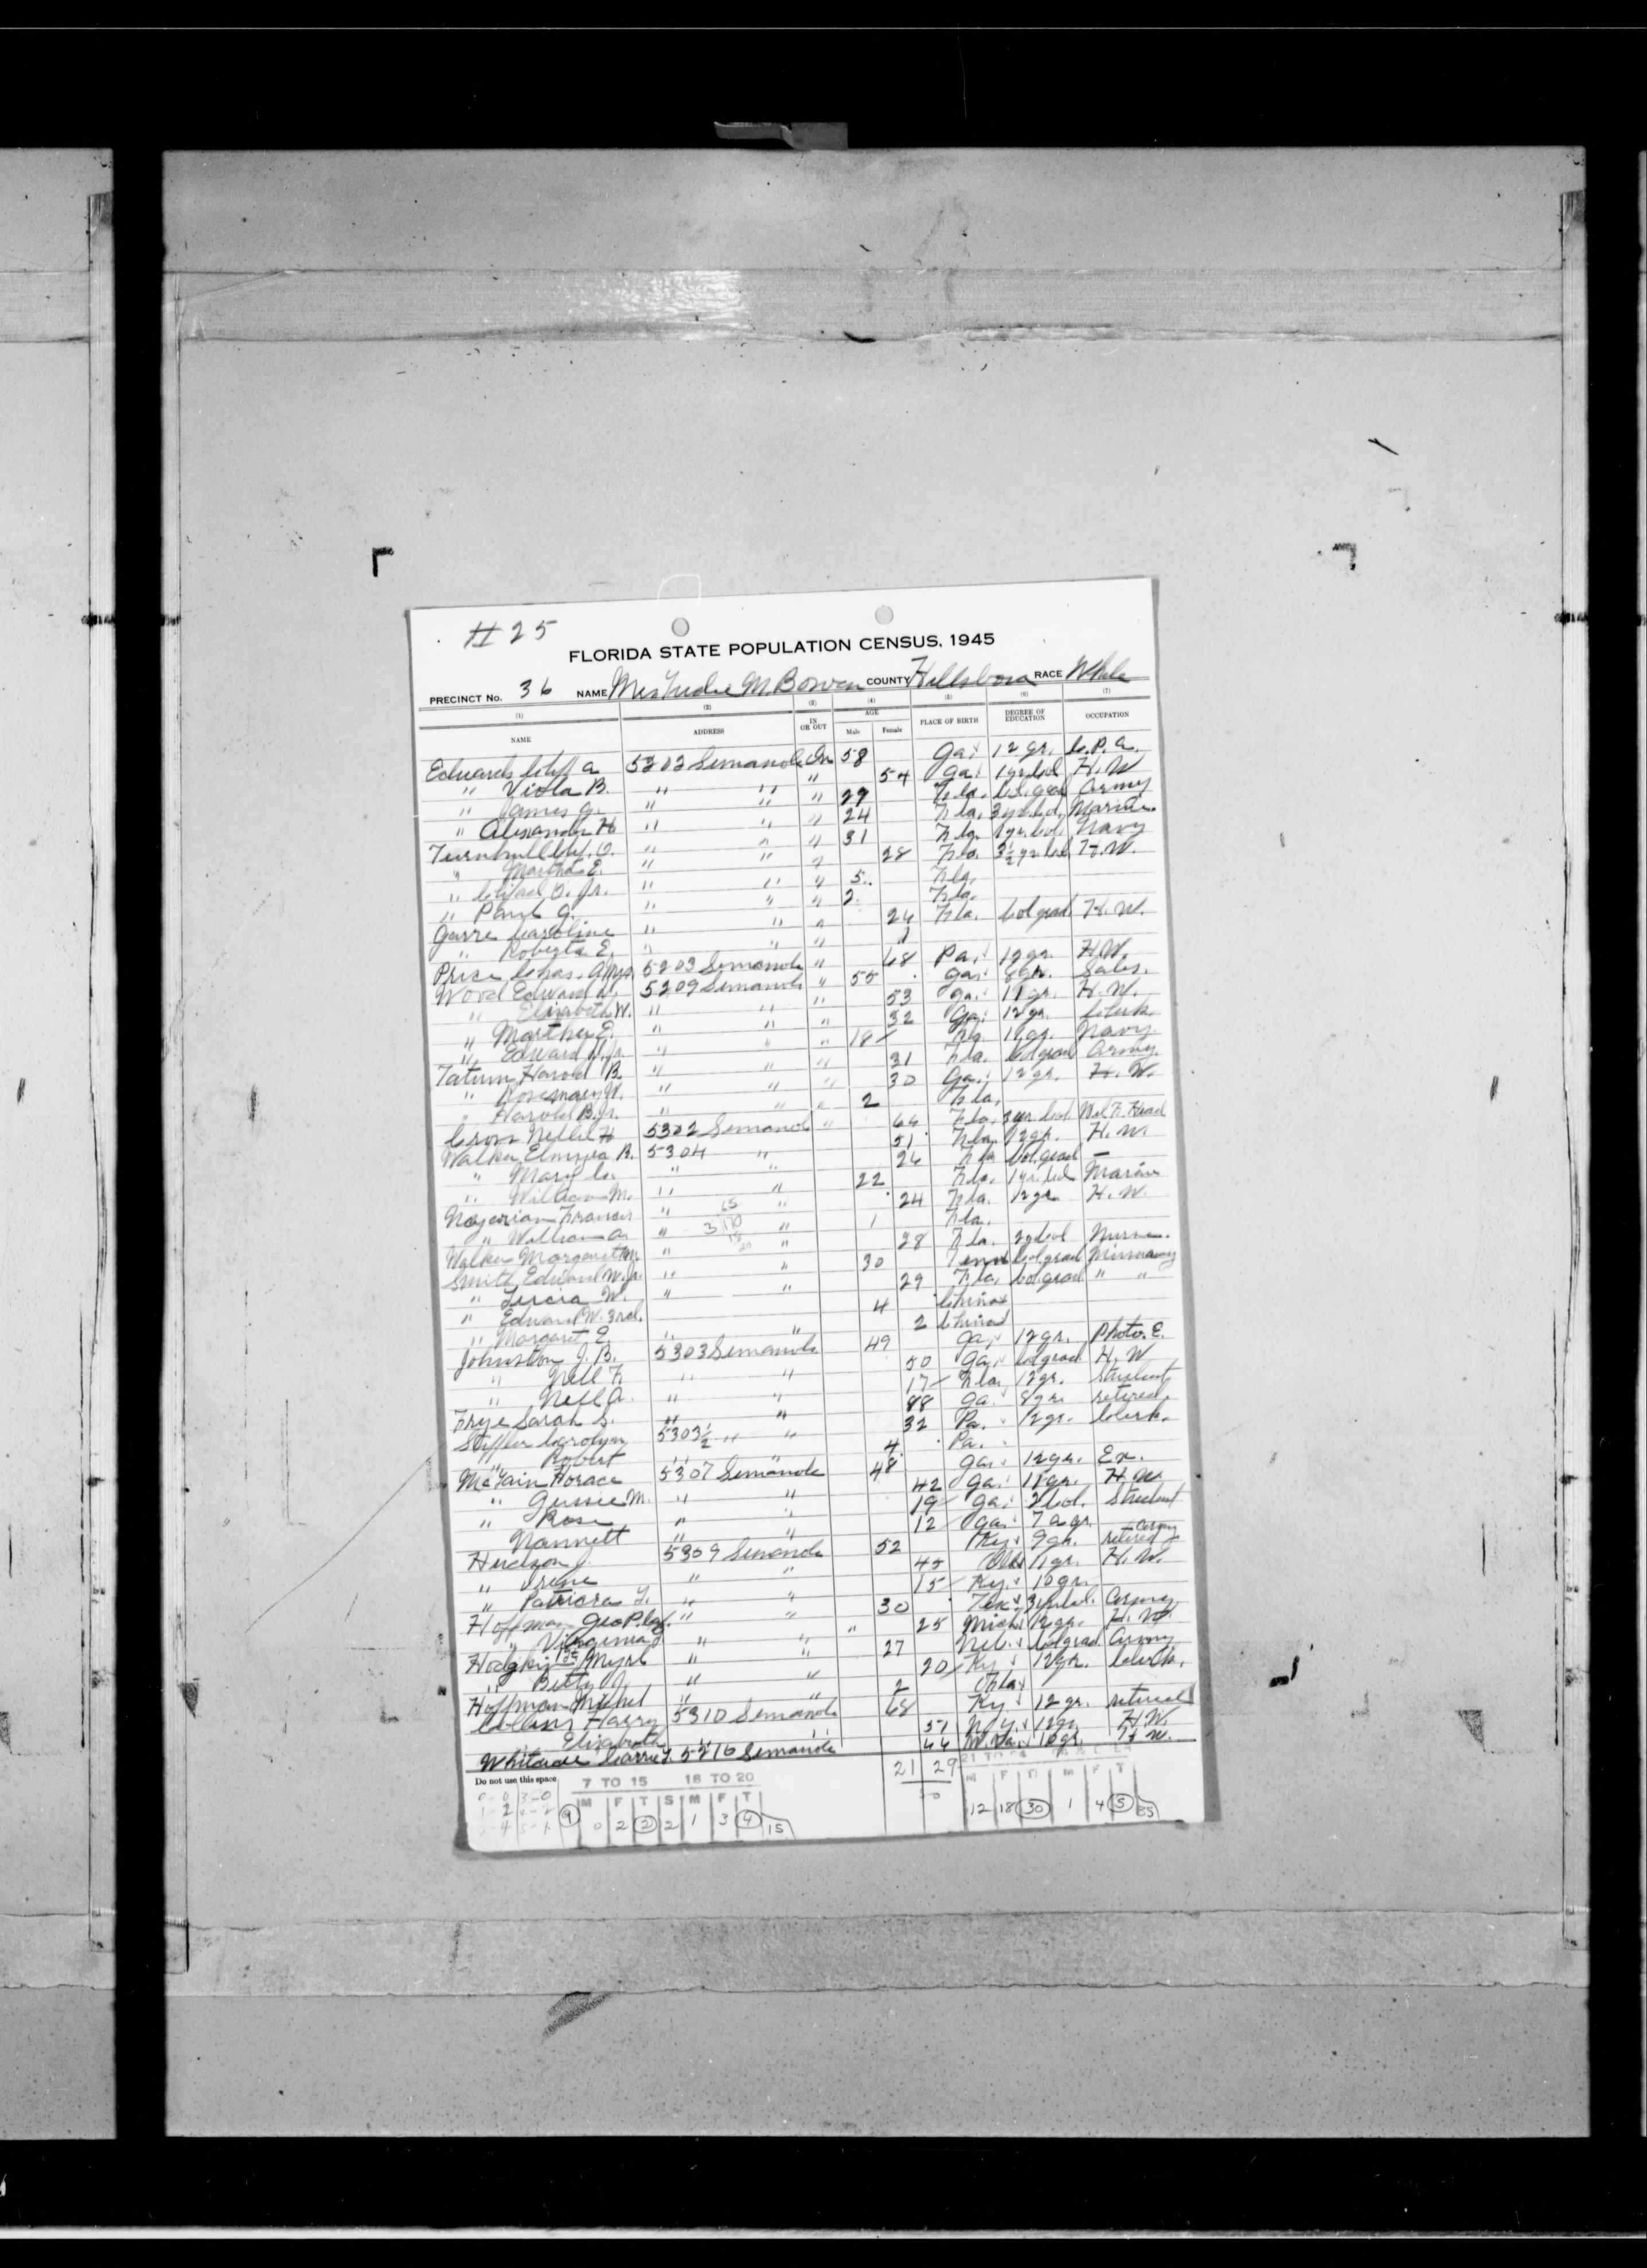 # 25
FLORIDA STATE POPULATION CENSUS, 1945
PRECINCT No. 36 NAME Mrs M Bowen COUNTY Hillsboro RACE White
(1) (2) (3) (4) (5) (6) (7)
NAME ADDRESS IN OR OUT AGE Male Female PLACE OF BIRTH DEGREE OF EDUCATION OCCUPATION
Edwards a 5202 Semanole In 58 Ga. 12 gr. C.P.A.
" Viola B. " " " 54 Ga. 1 yr col H.W
" James " " " 29 Fla. Col. grad Army
" Alexander H " " " 24 Fla. 3 yr col. Marine
Turnbull O. " " " 31 Fla. 1 yr. col Navy
" Martha E. " " " 28 Fla. 3½ yr col H.W.
" O. Jr. " " " 5 Fla.
" G. " " " 2 Fla.
Garre Caroline " " " 24 Fla. Col grad H.W.
" Roberta E. " " " 1
Price Chas. Mrs. 5203 Semanole " 68 Pa. 12 gr. H.W.
Wood Edward 5209 Semanole " 55 Ga. 8 gr. Sales.
" Elizabeth W. " " " 53 Ga. 11 gr. H.W.
" Marther E. " " " 32 Ga. 12 gr. Clerk
" Edward Jr. " " " 18 Fla. 11 gr. Navy
Tatum Harold B. " " " 31 Fla. Col grad Army.
" Rosemary W. " " " 30 Ga. 12 gr. H.W.
" Harold B. Jr. " " " 2 Fla.
Cron Nellie H 5302 Semanole " 66 Fla. 2 yr. col. Head
Walker B. 5304 " 51 Fla. 12 gr. H.W.
" Mary " " 26 Fla Col. grad —
" William M. " " 22 Fla. 1 yr. col Marine
Nazerian Francis " " 24 Fla. 12 gr. H.W.
" William A. " " 1 Fla.
Walker Margaret M. " " 28 Fla. 2 y col Nurse.
Smith Edward W. Jr. " " 30 Tenn Col grad Missionary
" W. " " 29 Fla. Col. grad " "
" Edward W. 3rd. 4 China
" Margaret E. " " 2 China
Johnston J. B. 5303 Semanole 49 Ga. 12 gr. Photo. E.
" Nell F. " " 50 Ga. Col grad H.W
" Nell A. " " 17 Fla. 12 gr. student
Frye Sarah S. " " 88 Ga. 8 gr. retired
Stiffler Carolyn 5303½ " " 32 Pa. 12 gr. Clerk.
" Robert " " 4 Pa.
McLain Horace 5307 Semanole 48 Ga. 12 gr. Ex.
" Gussie M. " " 42 Ga. 11 gr. H.W.
" Rose " " 19 Ga. 2 Col. Student
Nannett " " 12 Ga. 7 gr.
Hudson J. 5309 Semanole 52 Ky. 9 gr. retired Army
" Irene " " 45 11 gr. H.W.
" Patricia Y. " " 15 Ky. 10 gr.
Hoffman Geo P. " " 30 Tex. 3 yr col. Army
" Virginia " " " 25 Mich. 12 gr. H.W.
Myrl " " 27 Neb. Col grad Army
" Betty J. " " 20 Ky 12 gr. Clerk.
Hoffman " " 2
Collins Harry 5310 Semanole 68 Ky. 12 gr. retired
Elizabeth " " 51 N.Y. 12 gr. H.W.
Whiteside Carrie 5216 Semanole 46 W.Va. 10 gr. H.W.
21 29
50
Do not use this space 7 TO 15 18 TO 20
M F T S M F T M F T M F T
0 2 2 2 1 3 4 15 12 18 30 1 4 5 35